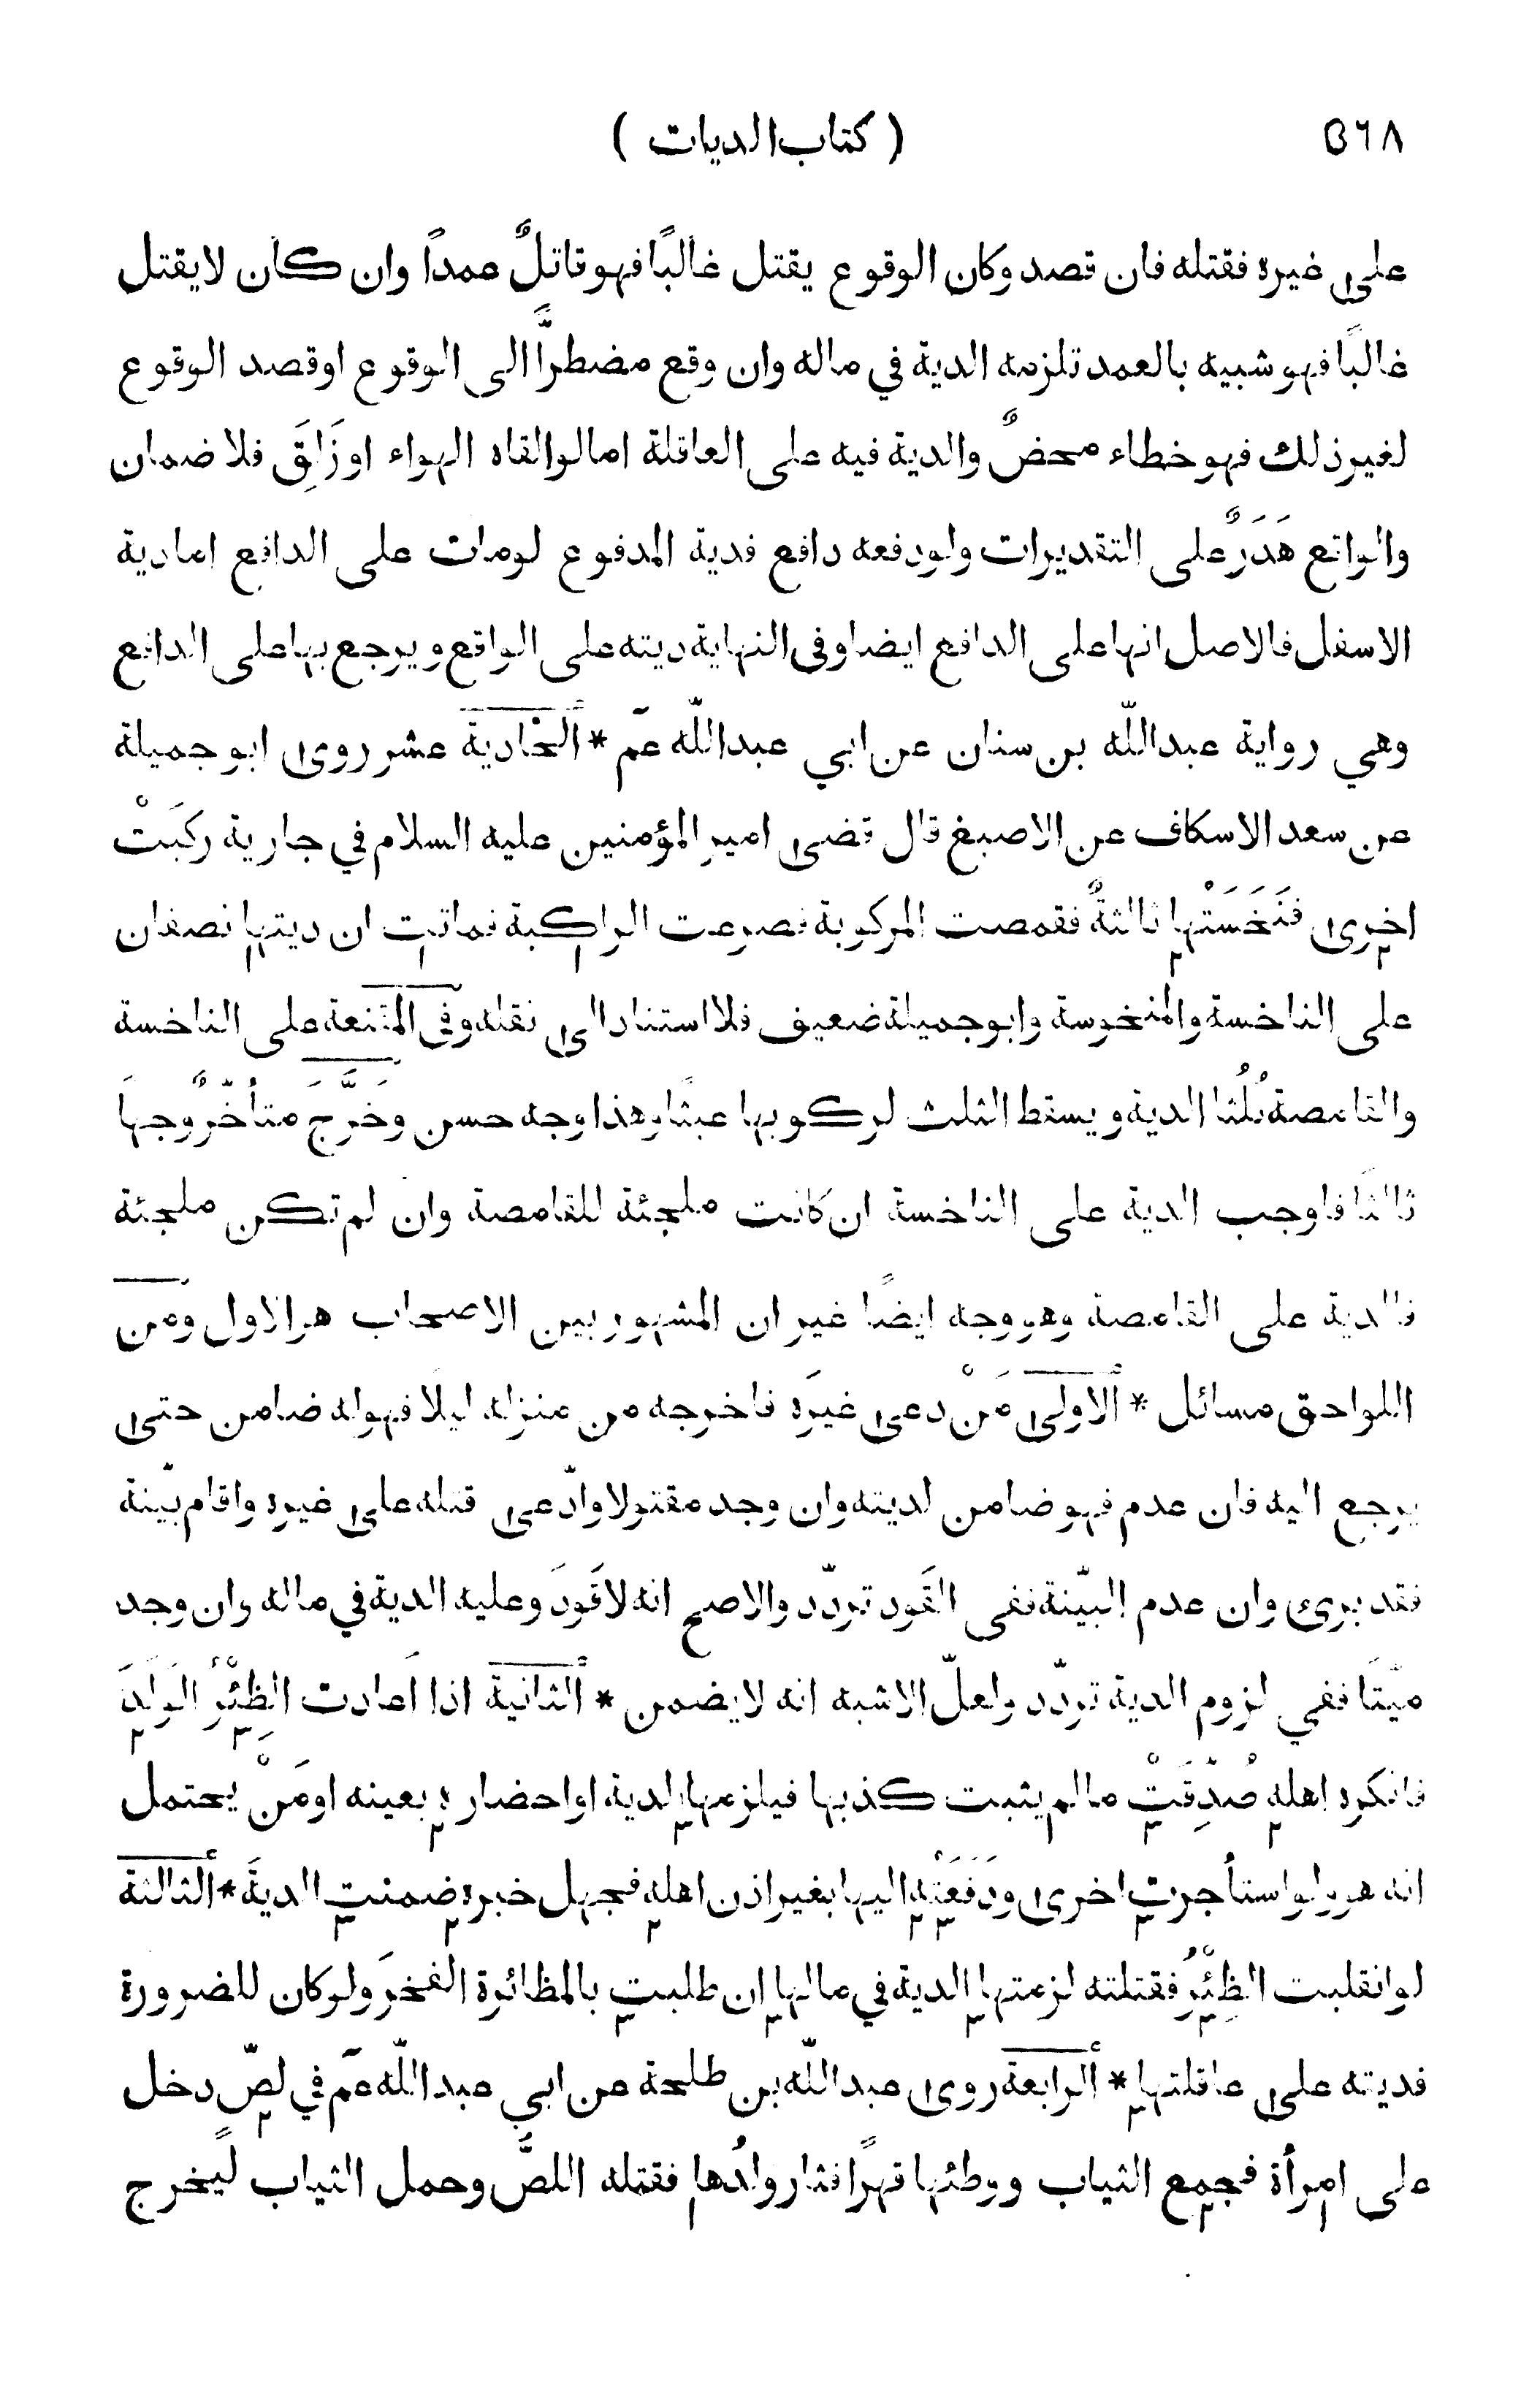 ٥٦٨ ( كتاب الديات )
على غيره فقتله فان قصد وكان الوقوع يقتل غالبًا فهو قاتلٌ عمدًا وان كان لايقتل
غالبًا فهو شبيه بالعمد تلزمه الدية في ماله وان وقع مضطرًّا الى الوقوع او قصد الوقوع
لغير ذلك فهو خطاء محضٌ والدية فيه على العاقلة اما لو القاه الهواء او زَلِقَ فلا ضمان
والواقع هَدَرٌ على التقديرات ولو دفعه دافع فدية المدفوع لومات على الدافع اما دية
الاسفل فالاصل انها على الدافع ايضا وفى النهاية ديته على الواقع ويرجع بها على الدافع
وهي رواية عبداللّه بن سنان عن ابي عبداللّه عمّ * اَلحادية عشر روى ابو جميلة
عن سعد الاسكاف عن الاصبغ قال قضى امير المؤمنين عليه السلام في جارية ركبَتْ
اخرى فنَخَسَتْها ثالثةٌ فقمصت المركوبة فصرعت الراكبة فماتت ان ديتها نصفان
على الناخسة والمنخوسة وابو جميلة ضعيف فلا استناد الى نقله وفى المقنعة على الناخسة
والقامصة ثُلُثا الدية ويسقط الثلث لركوبها عبثًا وهذا وجه حسن وخَرَّجَ متأخّرٌ وجهًا
ثالثًا فاوجب الدية على الناخسة ان كانت ملجئة للقامصة وان لم تكن ملجئة
فالدية على القامصة وهو وجه ايضًا غير ان المشهور بين الاصحاب هو الاول ومن
اللواحق مسائل * اَلاولى مَنْ دعى غيرَه فاخرجه من منزله ليلًا فهو له ضامن حتى
يرجع اليه فان عدم فهو ضامن لديته وان وجد مقتولا وادّعى قتله على غيره واقام بيّنة
فقد برئ وان عدم البيّنة ففى القَود تردّد والاصح انه لا قَودَ وعليه الدية في ماله وان وجد
ميّتًا ففي لزوم الدية تردّد ولعلّ الاشبه انه لا يضمن * اَلثانية اذا اَعادت الظِئْرُ الولَدَ
فانكره اهله صُدّقَتْ ما لم يثبت كذبها فيلزمها الدية او احضاره بعينه او مَنْ يحتمل
انه هو ولو استأجرت اخرى ودَفَعَتْه اليها بغير اذن اهله فجهل خبره ضمنت الديةَ * اَلثالثة
لو انقلبت الظِئْرُ فقتلته لزمتها الدية في مالها ان طلبت بالمظائرة الفخرَ ولو كان للضرورة
فديته على عاقلتها * اَلرابعة روى عبداللّه بن طلحة عن ابي عبداللّه عمّ في لصّ دخل
على امرأة فجمع الثياب ووطئها قهرًا فثار ولدُها فقتله اللصُّ وحمل الثياب ليخرج